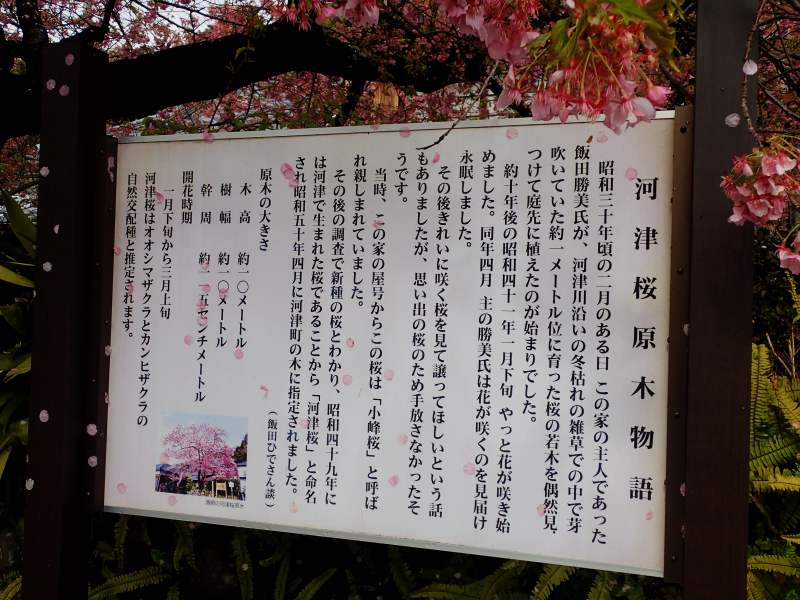 河津桜原木物語
昭和三十年頃の二月のある日 この家の主人であった
飯田勝美氏が、河津川沿いの冬枯れの雑草での中で芽
吹いていた約一メートル位に育った桜の若木を偶然見
つけて庭先に植えたのが始まりでした。
約十年後の昭和四十一年一月下旬 やっと花が咲き始
めました。同年四月 主の勝美氏は花が咲くのを見届け
永眠しました。
その後きれいに咲く桜を見て譲ってほしいという話
もありましたが、思い出の桜のため手放さなかったそ
うです。
当時、この家の屋号からこの桜は「小峰桜」と呼ば
れ親しまれていました。
その後の調査で新種の桜とわかり、昭和四十九年に
は河津で生まれた桜であることから「河津桜」と命名
され昭和五十年四月に河津町の木に指定されました。
(飯田ひでさん談)
原木の大きさ
木高 約一〇メートル
樹幅 約一〇メートル
幹周 約一一五センチメートル
開花時期
一月下旬から三月上旬
河津桜はオオシマザクラとカンヒザクラの
自然交配種と推定されます。